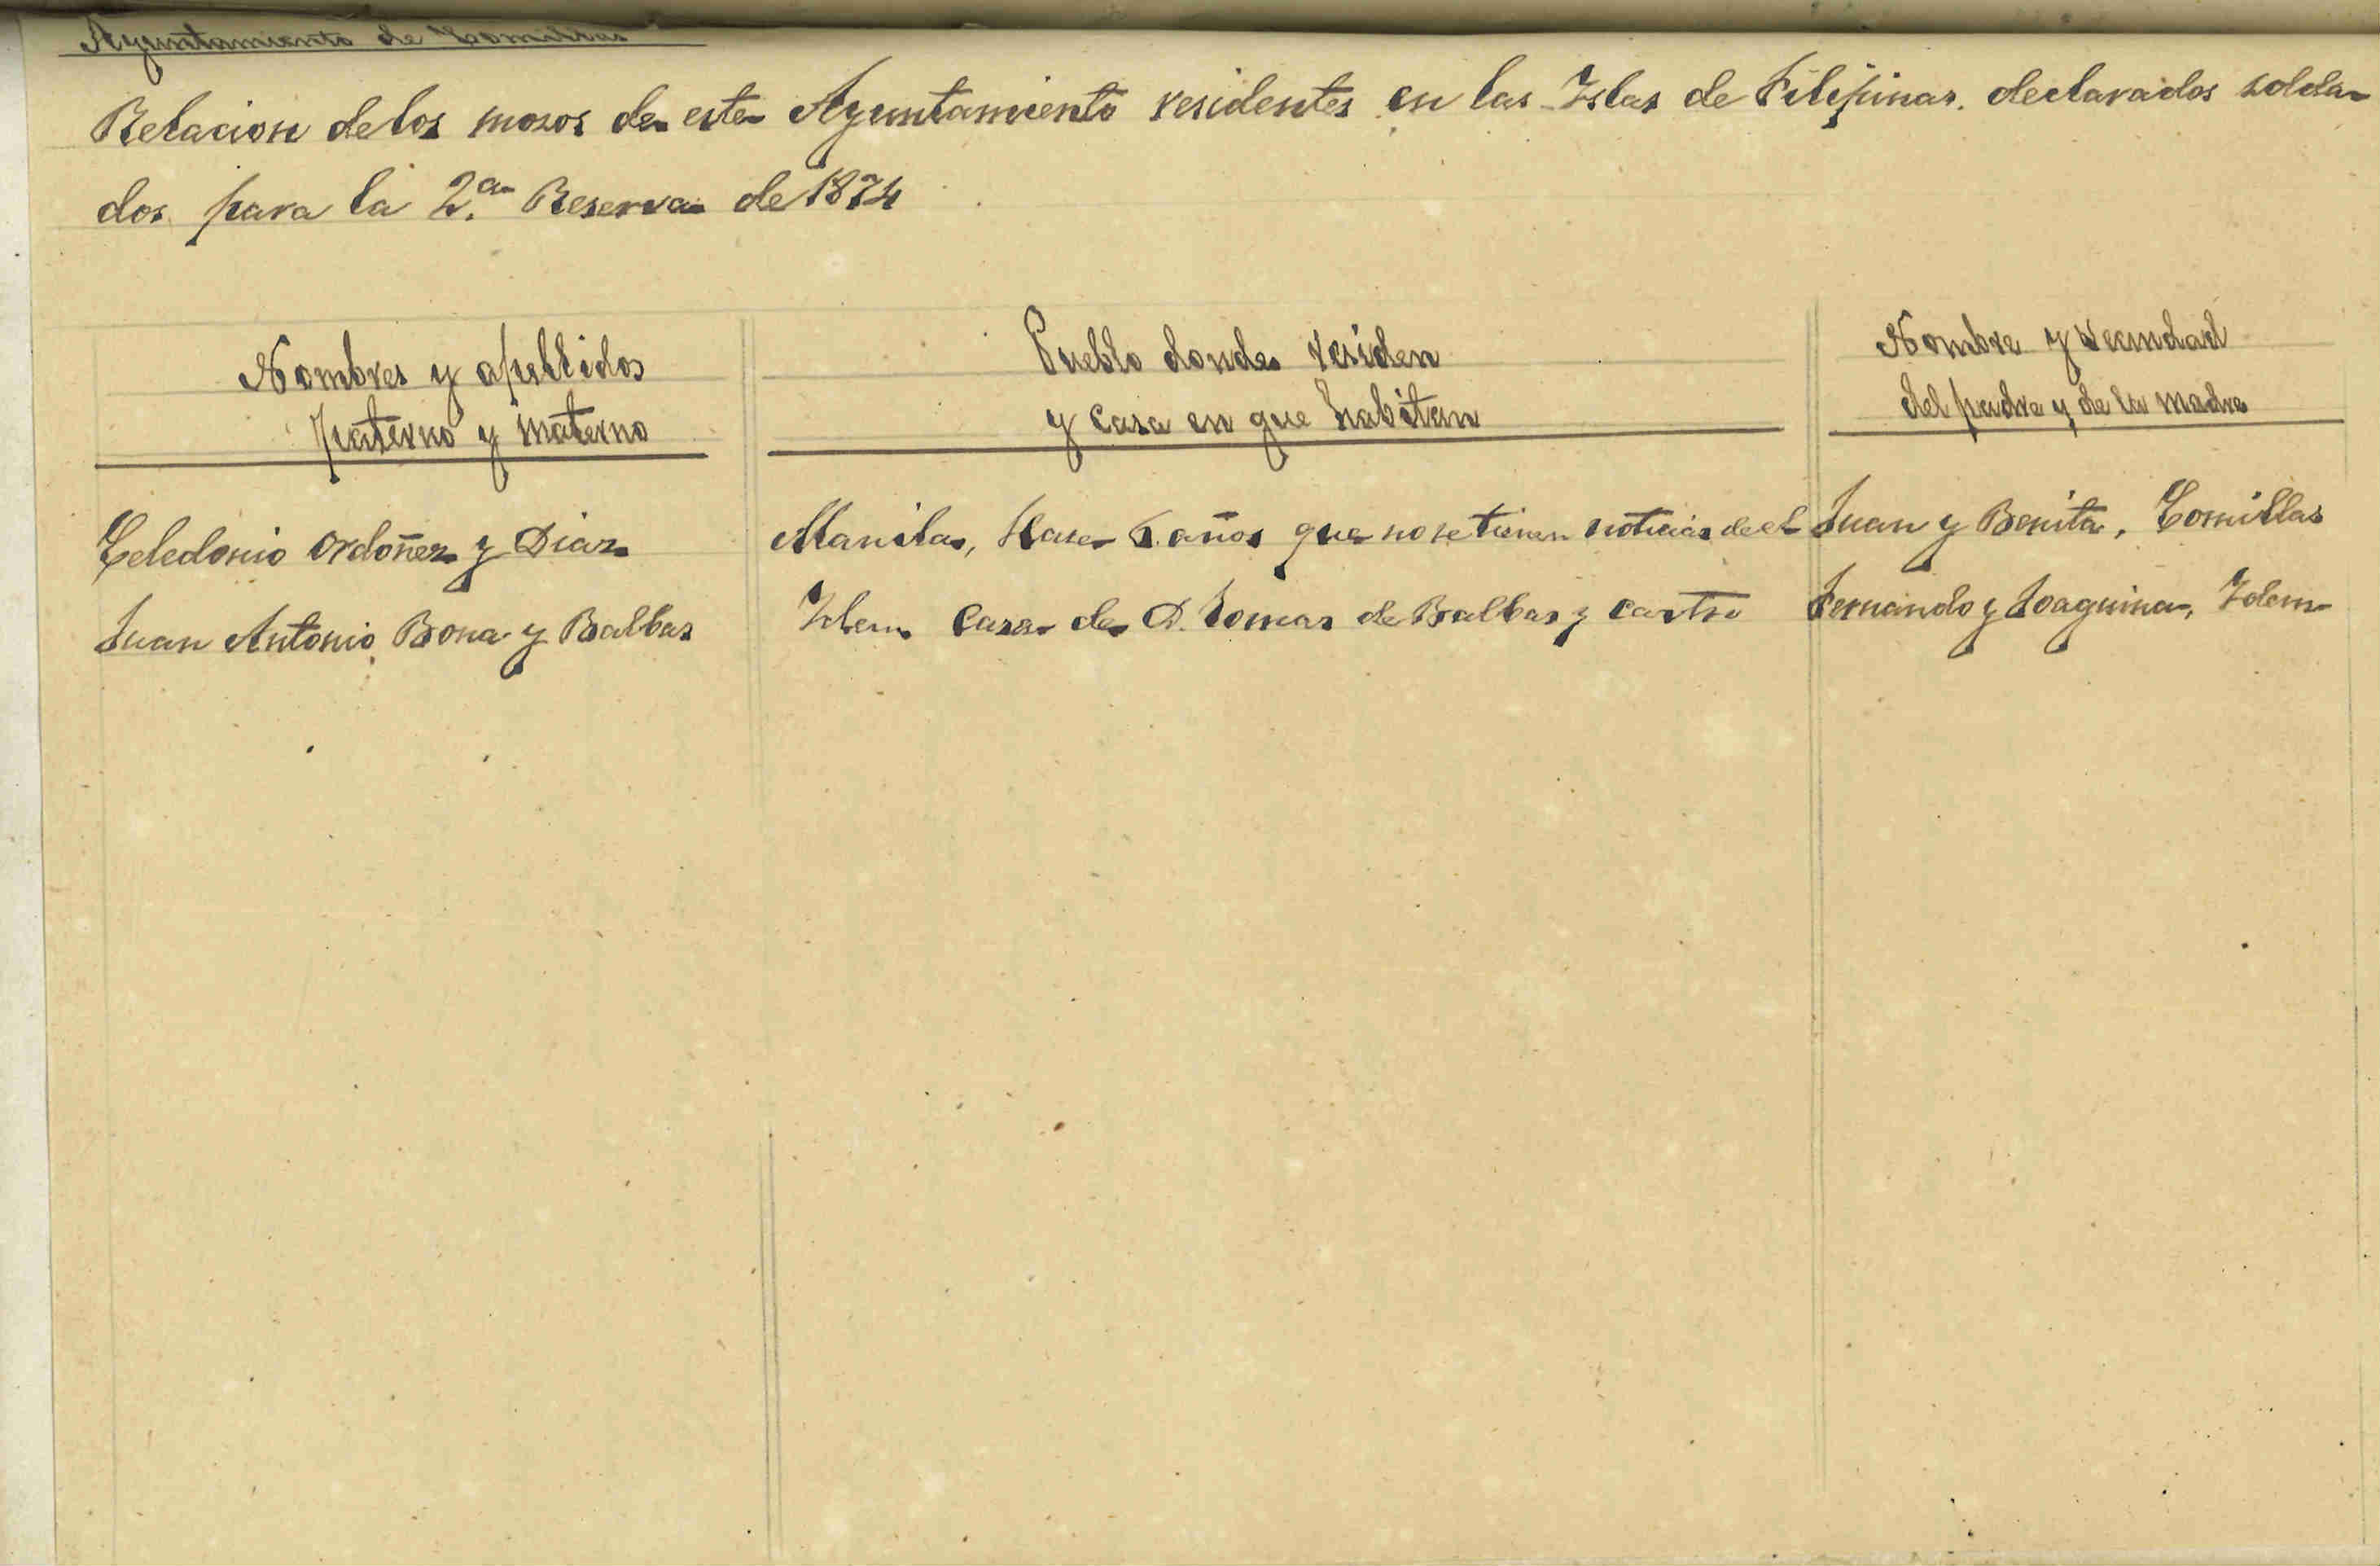 Ayuntamiento de Comillas
Relacion de los mozos de este Ayuntamiento residentes en las Islas de Filipinas. declarados solda-
dos para la 2.ª Reserva de 1874
Nombres y apellidos
paterno y materno
Pueblo donde residen
y casa en que habitan
Nombre y vecindad
del padre y de la madre
Celedonio Ordoñez y Diaz
Manila, Hace 6 años que no se tienen noticias de el
Juan y Benita, Comillas
Juan Antonio Bona y Balbas
Idem Casa de D. Tomas de Balbas y Castro
Fernando y Joaquina, Idem